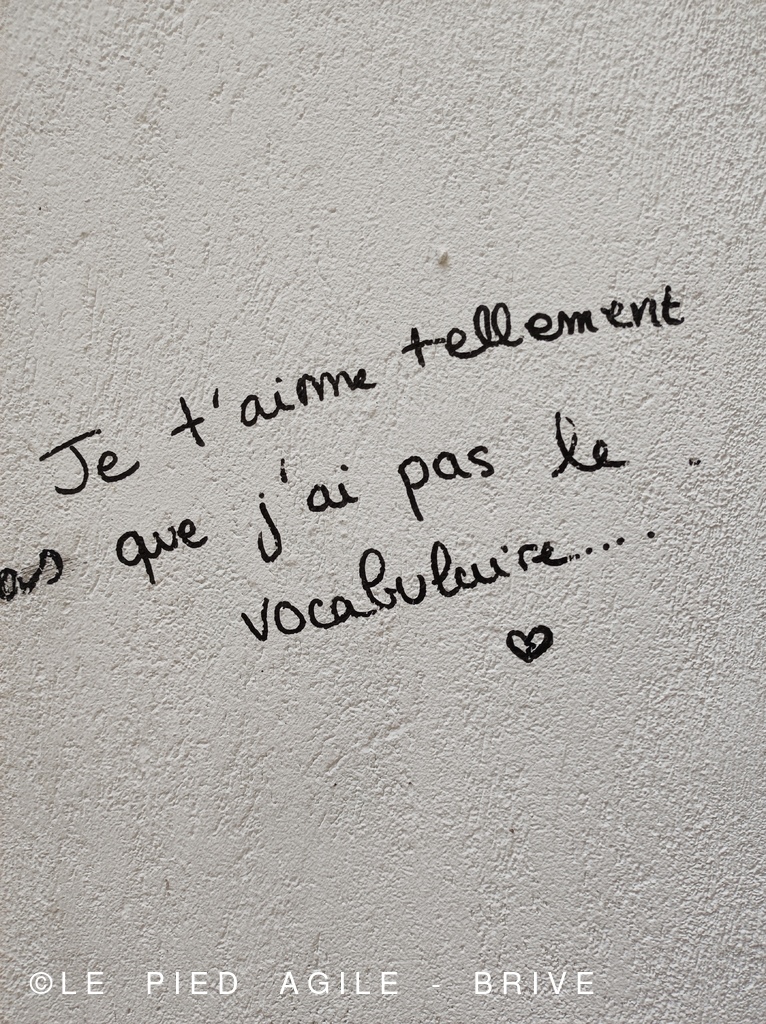 Je t'aime tellement
que j'ai pas le
vocabulaire.....
©LE PIED AGILE - BRIVE